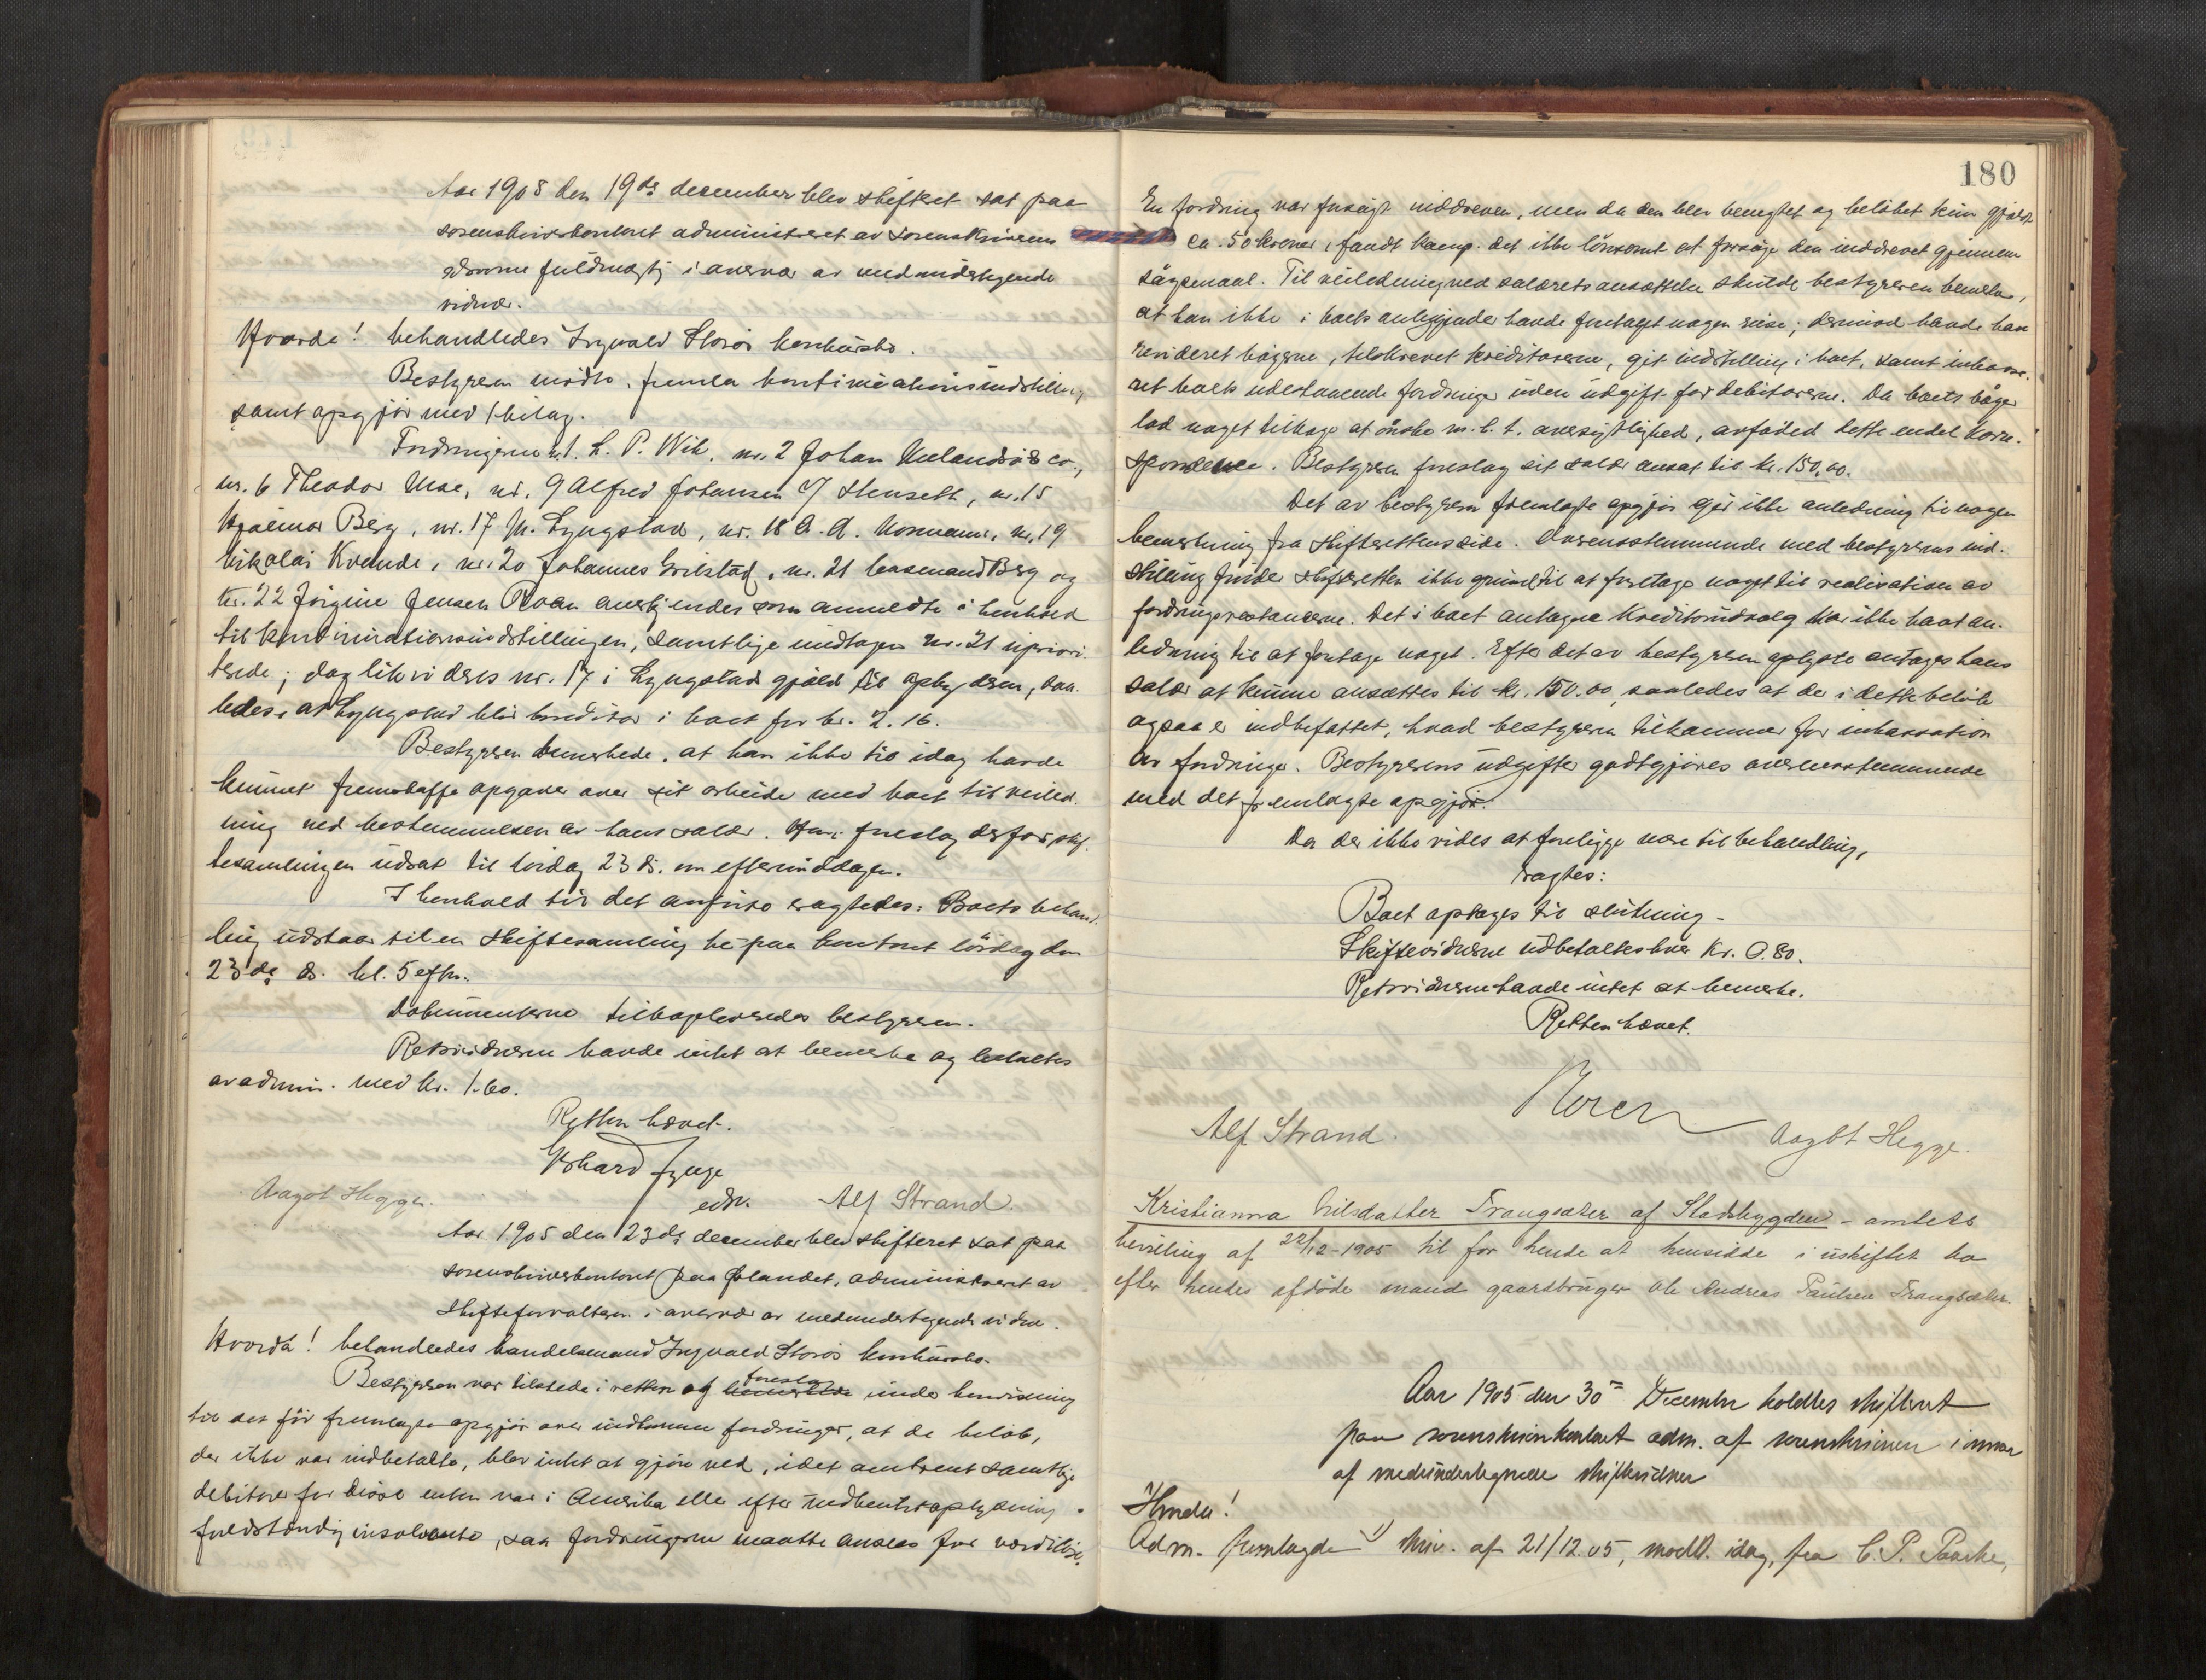 Aar 1905 den 19de december blev skifteret sat paa
sorenskriverkontoret administreret av sorenskriverens
edsvorne fuldmægtig i overvær av medundertegnede
vidner.
Hvorda! behandledes Ingvald Storøs konkursbo.
Bestyreren mødte, fremla kontinuationsindstilling
samt opgjør med 1 bilag.
Fordringerne nr. 1. L. P. Wik, nr. 2 Johan & co.,
nr. 6 Theodor Moe, nr. 9 Alfred Johansen / Stenseth, nr. 15
Hjalmar Berg, nr. 17 M. Lyngstad, nr. 18 A. A. Mosmann, nr. 19
Nikolai Kvende, nr. 20 Johannes Grilstad, nr. 21 lensmand Berg og
nr. 22 Jørgine Jensen Roan anerkjendes som anmeldte i henhold
til kontinuationsindstillingen, samtlige undtagen nr. 21 upriori-
terede; dog likvideres nr. 17 i Lyngstads gjæld til opbyderen, saa-
ledes, at Lyngstad blir kreditor i boet for kr. 2.16.
Bestyreren bemerkede, at han ikke til idag havde
kunnet fremskaffe opgave over sit arbeide med boet til veiled-
ning ved bestemmelsen av hans salær. Han foreslog derfor skif-
tesamlingen udsat til lørdag 23 ds. om eftermiddagen.
I henhold til det anførte eragtedes: Boets behand-
ling udstaar til en skiftesamling her paa kontoret lørdag den
23de ds. kl. 5 efm.
Dokumenterne tilbageleveredes bestyreren.
Retsvidnerne havde intet at bemerke og betaltes
av admin. med kr. 1.60.
Retten hævet.
edsv. Alf Strand.
Aagot Hegge.
Aar 1905 den 23de december blev skifteret sat paa
sorenskriverkontoret paa Ørlandet, administreret av
skifteforvalteren i overvær av medundertegnede vidner.
Hvorda! behandledes handelsmand Ingvald Storøs konkursbo.
Bestyreren var tilstede i retten og bemerkede foreslog under henvisning
til det før fremlagte opgjør over indkomne fordringer, at de beløb,
der ikke var indbetalte, blev intet at gjøre ved, idet omtrent samtlige
debitorer for disse enten var i Amerika eller efter indhentet oplysning
fuldstændig insolvente, saa fordringerne maatte ansees for værdiløse.
180
En fordring var forsøgt inddreven, men da den blev benegtet og beløbet kun gjaldt
ca. 50 kroner, fandt komp. det ikke lønsomt at forsøge den inddrevet gjennem
søgsmaal. Til veiledning ved salærets ansættelse skulde bestyreren bemerke,
at han ikke i boets anliggender havde foretaget nogen reise; derimod havde han
revideret bøgerne, tilskrevet kreditorerne, git indstilling i boet, samt inkasse-
ret boets udestaaende fordringer uden udgift for debitorerne. Da boets bøger
lod noget tilbage at ønske m. h. t. oversigtlighed, avfødte dette endel korre-
spondence. Bestyreren foreslog sit salær ansat til kr. 150,00.
Det av bestyreren fremlagte opgjør gir ikke anledning til nogen
bemerkning fra skifterettens side. Overensstemmende med bestyrerens ind-
stilling finder skifteretten ikke grund til at foretage noget til realisation av
fordringsrestancerne. Det i boet antagne kreditorudvalg har ikke havt an-
ledning til at foretage noget. Efter det av bestyreren oplyste antages hans
salær at kunne ansættes til kr. 150.00, saaledes at der i dette beløb
ogsaa er indbefattet, hvad bestyreren tilkommer for inkassation
av fordringer. Bestyrerens udgifter godtgjøres overensstemmende
med det fremlagte opgjør.
Da der ikke vides at foreligge mere til behandling,
eragtes:
Boet optages til slutning -
Skiftevidnerne udbetaltes hver Kr. 0.80.
Retsvidnerne havde intet at bemerke.
Retten hævet.
Alf Strand.
Aagot Hegge.
Kristianna Nilsdatter Trangsæter af Stadsbygden - amtets
bevilling af 22/12-1905 til for hende at hensidde i uskiftet bo
efter hendes afdøde mand gaardbruger Ole Andreas Paulsen Trangsæter.
Aar 1905 den 30te December holdtes skifteret
paa sorenskriverkontoret adm. af sorenskriveren i overvær
af medundertegnede skiftevidner
Hvorda!
Adm. fremlagde 1) skriv. af 21/12 05, modt. idag, fra C. P. Paaske,